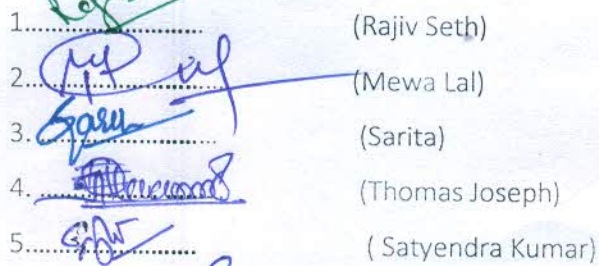 1.................................. (Rajiv Seth)
2.................................. (Mewa Lal)
3.................................. (Sarita)
4.................................. (Thomas Joseph)
5.................................. ( Satyendra Kumar)